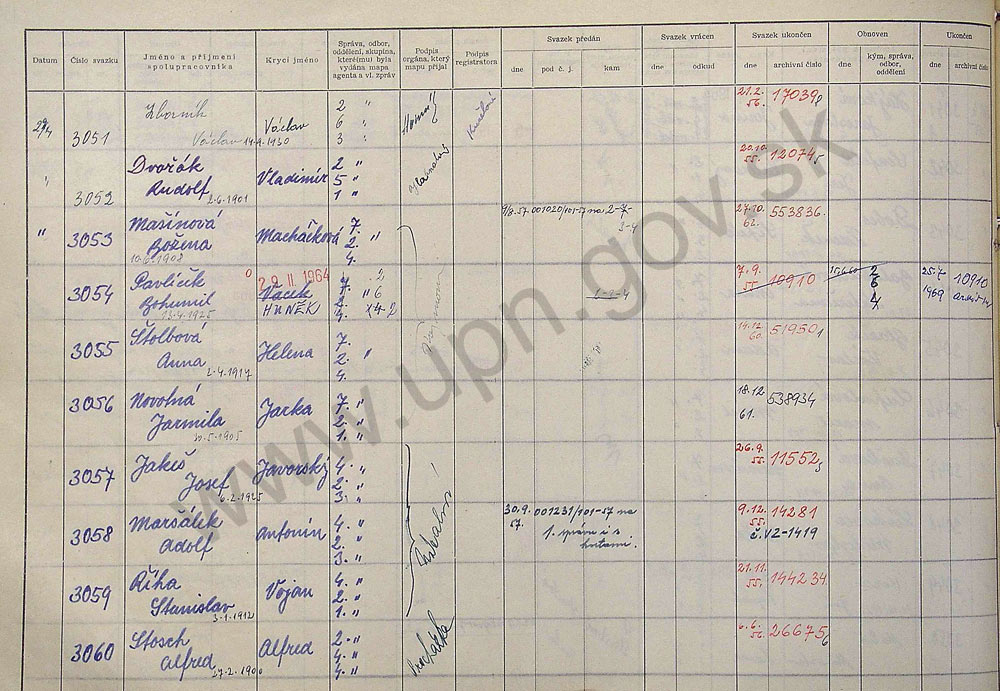 Datum
Číslo svazku
Jméno a příjmení
spolupracovníka
Krycí jméno
Správa, odbor,
oddělení, skupina,
které(mu) byla
vydána mapa
agenta a vl. zpráv
Podpis
orgána, který
mapu přijal
Podpis
registratora
Svazek předán
dne
pod č. j.
kam
Svazek vrácen
dne
odkud
Svazek ukončen
dne
archivní číslo
Obnoven
dne
kým, správa,
odbor,
oddělení
Ukončen
dne
archivní číslo
3051
Zborník
Václav 14.9.1930
Václav
2 "
6 "
3 "
21.2.
56.
3052
Dvořák
Rudolf 2.6.1901
Vladimír
2 "
5 "
1 "
20.10.
55.
12074
"
3053
Mašínová
Božena
10.6.1908
Macháčková
7.
2. "
4.
001020/101-57 na 2-7
27.10.
62.
553836.
3054
Pavlíček
Bohumil
13.4.1925
29 II 1964
Vacek
HŮNĚK
7. 2
2. " 6
4. x4-2
7.9.
55.
10910
15.6.60
2
6
4
25.7
1969
10910
3055
Štolbová
Anna
2.4.1917
Helena
7.
2. "
4.
14.12.
60.
51950
3056
Novotná
Jarmila
Jarka
7. "
2. "
1. "
18.12.
61.
538934
3057
Jakeš
Josef
6.2.1925
Javorský
4. "
2. "
3. "
26.9.
55.
11552
3058
Maršálek
Adolf
Antonín
4. "
2. "
3. "
30.9.
57.
001231/101-57 na
1. správu i s
9.12.
55.
14281
č. VZ-1419
3059
Říha
Stanislav
3.1.1912
Vojan
4. "
2. "
1. "
21.11.
55.
144234
3060
Stosch
Alfred
Alfred
2. "
4. "
4. "
26675
Procházka
www.upn.gov.sk